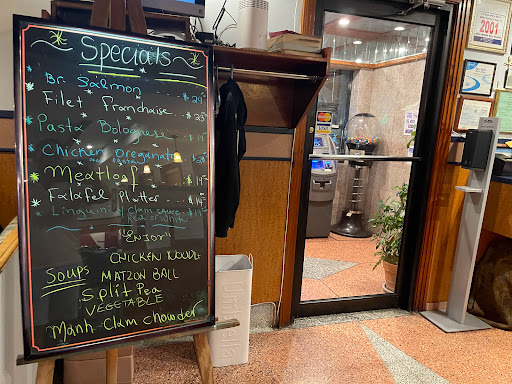 Specials
Br. Salmon
Filet Franchaise
Pasta Bolognese
Chicken Oreganata
Meatloaf
Falafel Platter
Linguini Clam Sauce
Red or White
"Enjoy"
CHICKEN NOODLE
SOUPS
MATZON BALL
Split Pea
VEGETABLE
Manh. Clam chowder
2001